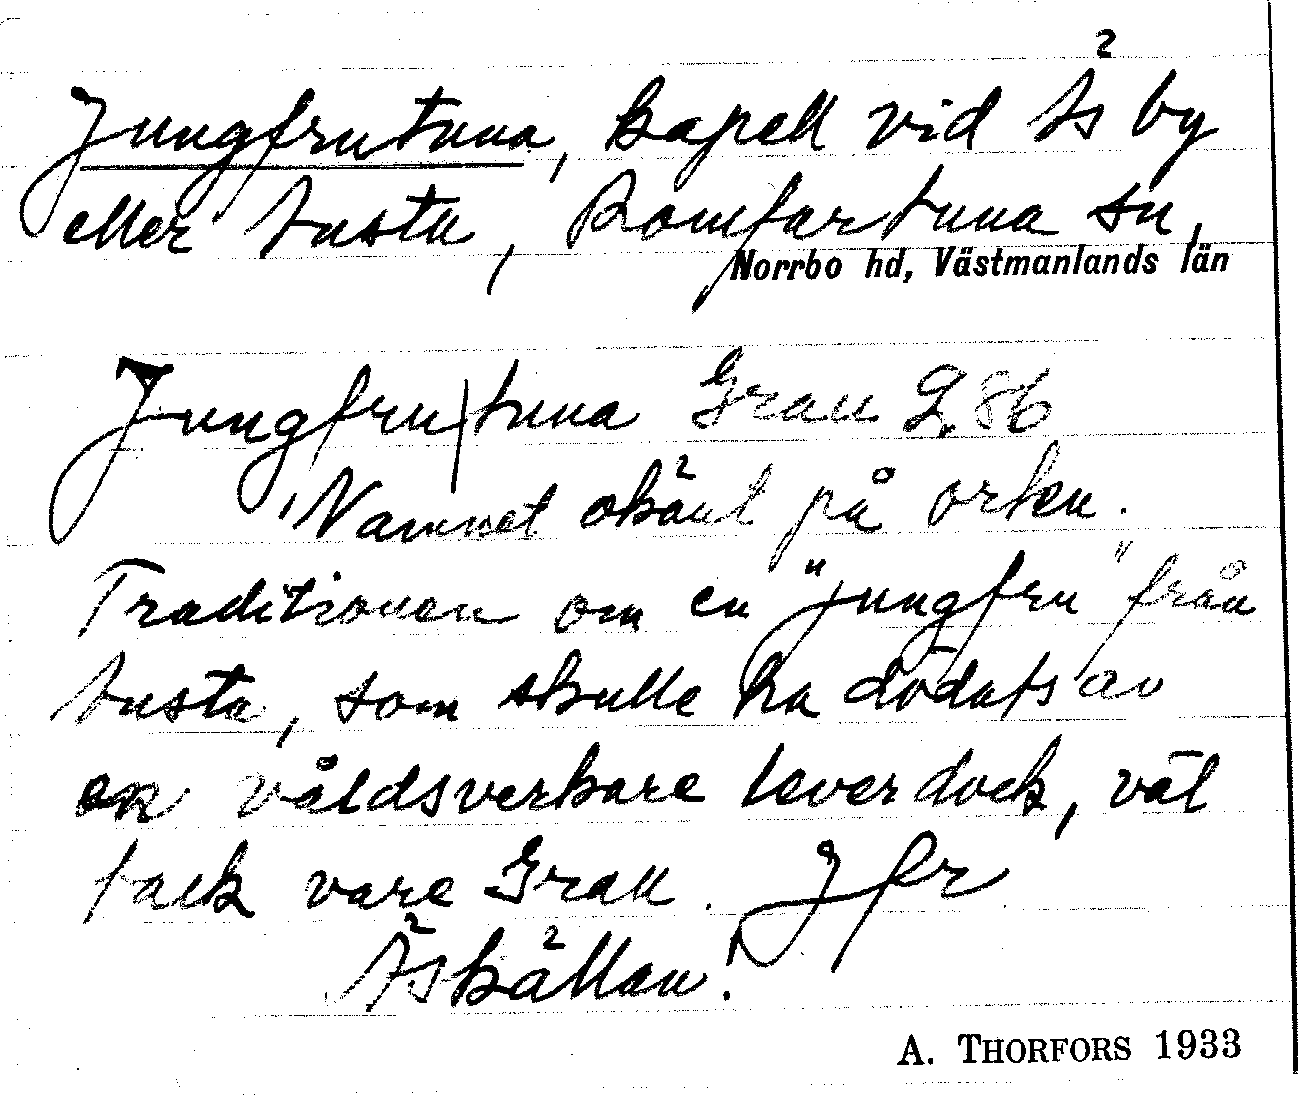 Jungfrutuna, kapell vid Äs by
eller Tusta, Romfartuna sn,
Norrbo hd, Västmanlands län
Jungfru|tuna Grau 2,86
Namnet okänt på orten.
Traditionen om en "jungfru" från
Tusta, som skulle ha dödats av
en våldsverkare lever dock, väl
tack vare Grau. Jfr
Äskällan!
A. THORFORS 1933